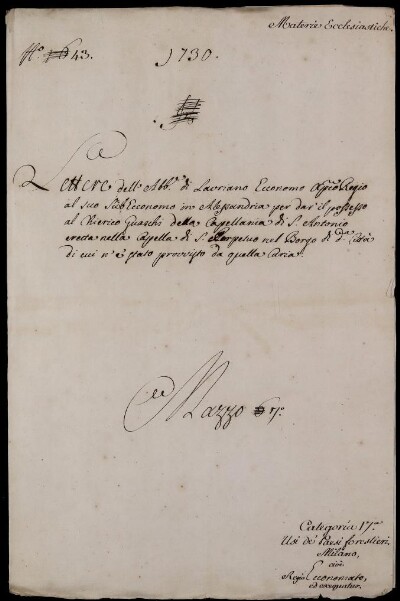 Materie Ecclesiastiche.
N.º 43.
1730.
Lettere dell'Abb.e di Lauriano Economo Gñle Regio
al suo SubEconomo in Alessandria per dar' il possesso
al Chierico Guaschi della Cappellania di S. Antonio
eretta nella Cappella di S. Perpetuo nel Borgo di d.a Città
di cui n'è stato provvisto da quella Curia.
Mazzo 7.º
Categoria 17.ma
Usi de' Paesi forestieri,
Milano,
cioè
Regio Economato,
ed exequatur.